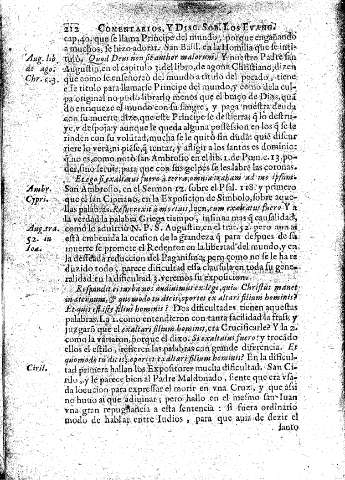 212 COMENTARIOS, Y DISC. SOB. LOS EVANG.
cap. 40. que se llama Principe del mundo, porque engañando
a muchos, se hizo adorar. San Basil. en la Homilia que se inti-
tuló, Quod Deus non sit author malorum. Y nuestro Padre san
Augustin, en el capitulo 1. del libro, de agone Christiano, dizen
que como se enseñoreó del mundo a titulo del pecado, tiene
este titulo para llamarse Principe del mundo, y como dela cul-
pa original no pudo librarlo menos que el hijo de Dios, quã
do enriquece el mundo con su sangre, y paga nuestra deuda
con su muerte, dize, que este Principe se destierra; q̃ lo destru-
ye, y despoja y aunque le queda alguna possession en los q̃ se le
rinden con su voluntad, mucha se le quitó sin duda: qui è discur
riere lo verá, ni piẽse, q̃ tentar, y afligir a los santos es dominio;
q̃ no es, como notò san Ambrosio en el lib. 1. de Pœn. c. 13. po-
der, sino seruir, para que con sus golpes se les labre las coronas.
Et ego si exaltatus fuero à terra, omnia traham ad me ipsum.
San Ambrosio, en el Sermon 12. sobre el Psal. 118. y primero
que el san Cipriano, en la Exposicion de Simbolo, sobre aque-
llas palabras, Resurrexit à mortuis, lee, cum exaltatus fuero. Y a
la verdad la palabra Griega tiempo, insinua mas q̃ causalidad,
como lo aduirtió N. P. S. Augustin, en el trac. 52. pero aun assi
està embeuida la ocasion de la grandeza q̃ para despues de su
muerte se promete el Redentor en la libertad del mundo, y en
la desseada reduccion del Paganismo; pero como no se le ha re
duzido todo, parece dificultad essa clausula en toda su gene-
ralidad; en la dificultad 3. veremos su exposicion.
Respondit ei turba nos audiuimus ex lege, quia Christus manet
in æternum, & quomodo tu dicis, oportet exaltari filium hominis?
Et quis est iste filius hominis? Dos dificultades tienen aquestas
palabras. La 1. como entendieron con tanta facilidad la frasi, y
juzgaró que el exaltari filium hominis, era Crucificarle? Y la 2.
como la variaron, porque el dixo, Si exaltatus fuero: y trocãdo
ellos el estilo, refieren las palabras con grande diferencia, Et
quomodo tu dicis, oportet exaltari filium hominis? En la dificul-
tad primera hallan los Expositores mucha dificultad. San Ci-
rilo, y le parece bien al Padre Maldonado, siente que era vsa-
da locucion para expressar el morir en vna Cruz, y que assi
no huuo al que adiuinar; pero hallo en el mesmo san Iuan
vna gran repugnancia a esta sentencia: si fuera ordinario
modo de hablar entre Iudios, para que auia de dezir el
santo
Aug. lib.
de ago.
Chr. c. 3.
Ambr.
Cypri.
Aug. tra.
52. in
Ioa.
Ciril.